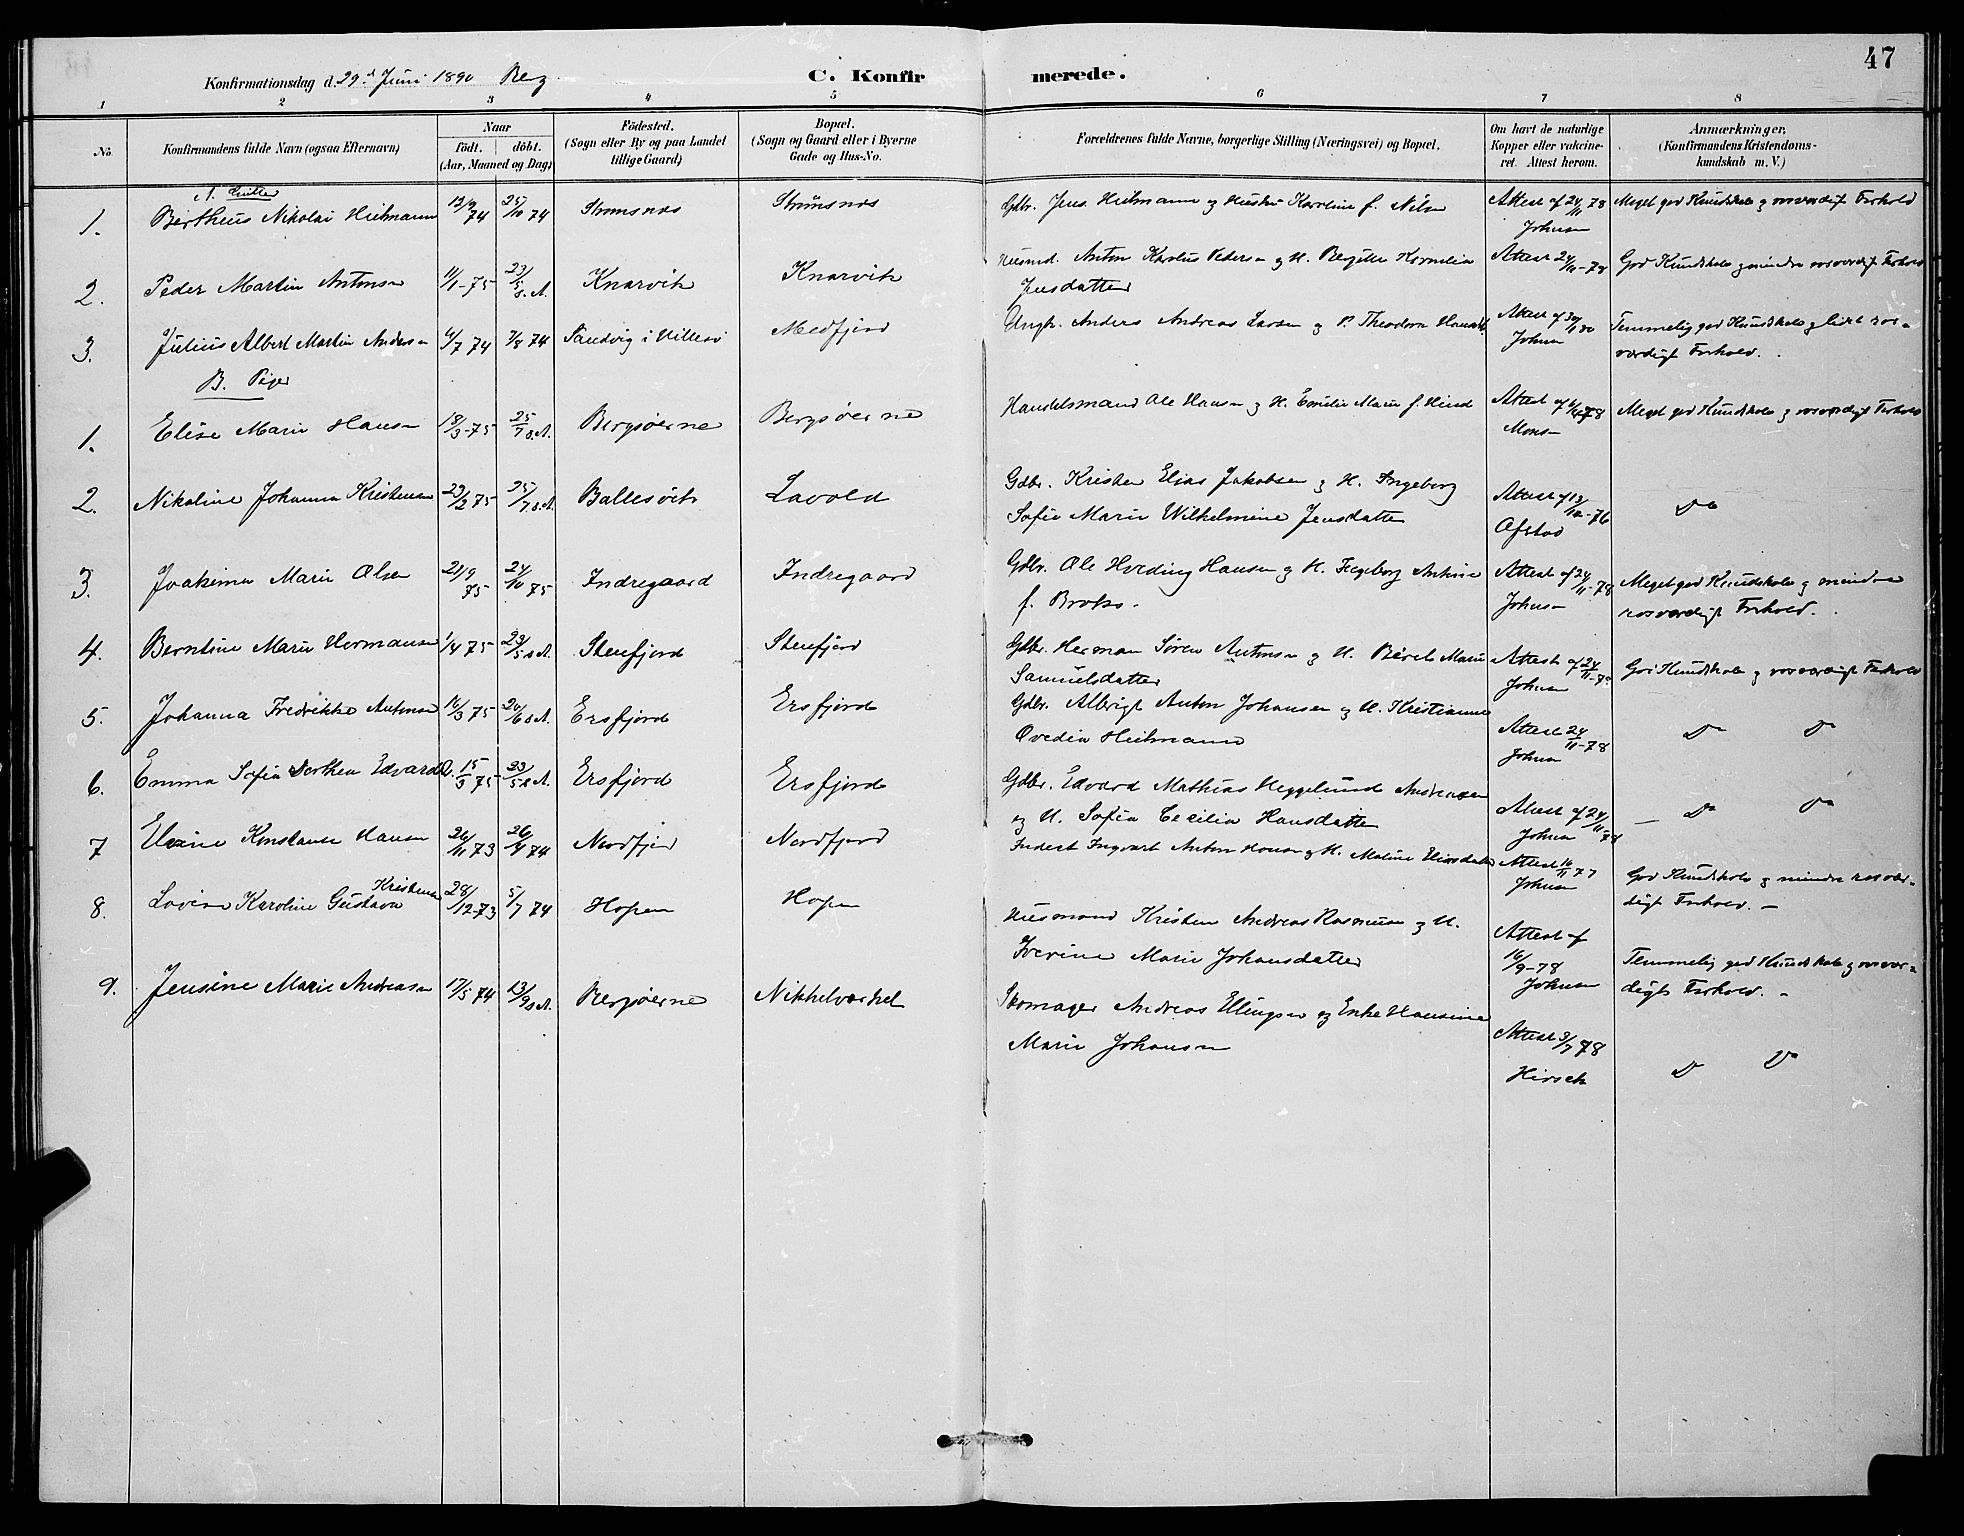 47
Konfirmationsdag d. 29d Juni 1890 Berg
C. Konfirmerede.
1 2 3 4 5 6 7 8
No.
Konfirmandens fulde Navn (ogsaa Efternavn)
Naar
födt. döbt.
(Aar, Maaned og Dag)
Födested.
(Sogn eller By og paa Landet
tillige Gaard)
Bopæl.
(Sogn og Gaard eller i Byerne
Gade og Hus-No.
Forældrenes fulde Navne, borgerlige Stilling (Næringsvei) og Bopæl.
Om havt de naturlige
Kopper eller vakcine-
ret. Attest herom.
Anmærkninger.
(Konfirmandens Kristendoms-
kundskab m. V.)
1. Bertheus Nikolai Heitmann 74 25/10 74 Strømsnæs Strømsnæs Gdbr. Jens Heitmann og Hustru Karoline f. Nilsen Attest af 24/11 78 Meget god Kundskab og rosværdigt Forhold
Johnsen
2. Peder Martin Antonsen 11/1-75 23/5 s.A. Knarvik Knarvik Husmd. Anton Karelius Pedersen og H. Bergitte Kornelia Attest 24/11-78 God Kundskab og mindre rosværdigt Forhold
Jensdatter
3. Julius Albert Martin Andersen 4/7 74 7/8 74 Sandvig i Hillesø Medfjord Ungk. Anders Andreas Larsen og P. Theodora Hansdt. Attest af 30/1 80 Temmelig god Kundskab og lidet ros-
Johnsen værdigt Forhold.
B. Piger
1. Elise Marie Hansen 19/3-75 25/7 s.A. Bergsøerne Bergsøerne Handelsmand Ole Hansen og H. Emilie Marie f. Hind Attest af 78 Meget god Kundskab og rosværdigt Forhold
2. Nikoline Johanna Kristensen 23/2 75 25/7 s.A. Ballesvik Lavold Gdbr. Kristen Elias Jakobsen og H. Ingeborg
Sofie Marie Wilhelmine Jensdatter Attest af 13/12-76 Do
3. Joakima Marie Olsen 21/9 75 24/10 75 Indregaard Indregaard Gdbr. Ole Hveding Hansen og H. Ingeborg Antine Attest af 24/11-78 Meget god Kundskab og mindre
f. Broks. Johnsen rosværdigt Forhold.
4. Berntine Marie Hermansen 1/4 75 23/5 s.A. Stenfjord Stenfjord Gdbr. Herman Søren Antonsen og H. Berel Marie Attest af 24/11-78 God Kundskab og rosværdigt Forhold
Samuelsdatter Johnsen
5. Johanna Fredrikke Antonsen 16/3 75 20/6 s.A. Ersfjord Ersfjord Gdbr. Albrigt Anton Johansen og H. Kristianne Attest 24/11-78 Do Do
Ovedia Heitmann Johnsen
6. Emma Sofia Dorthea Edvards. 15/3 75 23/5 s.A. Ersfjord Ersfjord Gdbr. Edvard Mathias Heggelund Andreassen Attest af 24/11-78 — Do Do
og H. Sofia Cecilia Hansdatter Johnsen
7 Elvine Konstanse Hansen 26/11 73 74 Nordfjord Nordfjord Inderst Ingvart Anton Hansen og H. Maline Eliasdatter Attest 16/11 77 God Kundskab og mindre rosvær-
Johnsen digt Forhold. —
8. Lovise Karoline Gustava Kristensen 28/12-73 5/7 74 Hopen Hopen Husmand Kristen Andreas Rasmusen og H. Attest af
Iverine Marie Johansdatter 16/9-78 Temmelig god Kundskab og rosvær-
Johnsen digt Forhold. -
9. Jensine Marie Andreasen 17/5 74 13/9 s.A. Bergsøerne Nikkelværket Skomager Andreas Ellingsen og Enke Hansine Attest 3/7 78 D D
Marie Johansen Hirsch